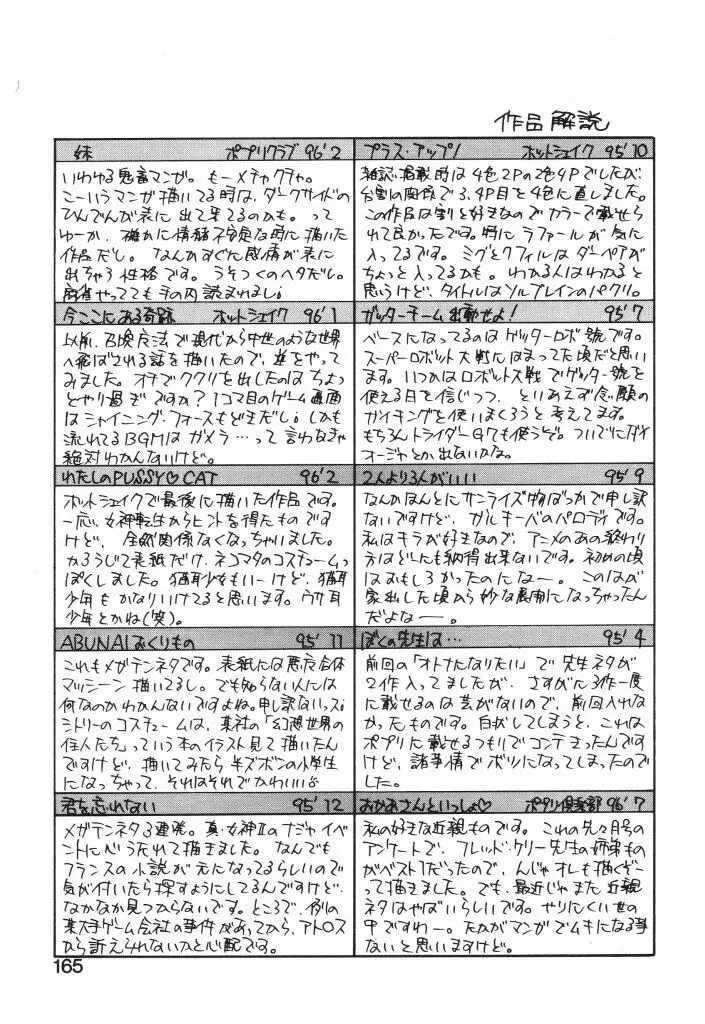 作品解説
妹 ポプリクラブ 96'2
いわゆる鬼畜マンガ。もーメチャクチャ。
こーいうマンガ描いてる時は、ダークサイドの
ひんでんが表に出て来てるのかも。って
ゆーか、確かに情緒不安定な時に描いた
作品だし。なんかすぐに感情が表に
出ちゃう性格です。うそつくのヘタだし。
麻雀やってても手の内読まれまし;
今ここにある奇跡 ホットシェイク 96'1
以前、召喚方法で現代から中世のような世界
へ飛ばされる話を描いたので、逆をやって
みました。オチでククリを出したのはちょっ
とやり過ぎですか? 1コマ目のゲーム画面
はシャイニング・フォースもどきだし; しかも
流れてるBGMはガメラ…って言わなきゃ
絶対わかんないけど。
わたしのPUSSY♡CAT 96'2
ホットシェイクで最後に描いた作品です。
一応、女神転生からヒントを得たものです
けど、全然関係なくなっちゃいました。
かろうじて表紙だけ、ネコマタのコスチュームっ
ぽくしました。猫耳少女もいーけど、猫耳
少年もかなりいけてると思います。ウサ耳
少年とかね(笑)。
ABUNAIおくりもの 95'11
これもメガテンネタです。表紙には悪魔合体
マッシーン描いてるし。でも知らない人には
何なのかわかんないですよね。申し訳ないっス;
シトリーのコスチュームは、某社の「幻想世界の
住人たち」っていう本のイラスト見て描いたん
ですけど、描いてみたら半ズボンの小学生
になっちゃって、それはそれでかわいい♡
君を忘れない 95'12
メガテンネタ3連発。真・女神Ⅱのナジャイベ
ントに心うたれて描きました。なんでも
フランスの小説が元になってるらしいので
気が付いたら探すようにしてるんですけど、
なかなか見つからないです。ところで、例の
某大手ゲーム会社の事件があってから、アトロス
から訴えられないかと心配です。
プラス・アップ! ホットシェイク 95'10
雑誌掲載時は4色2Pの2色4Pでしたが、
台割の関係で3、4P目を4色に直しました。
この作品は割と好きなのでカラーで載せら
れて良かったです。特にラファールが気に
入ってるです。ミグとクフィルはダーペアが
ちょっと入ってるかも。わかる人はわかると
思うけど、タイトルはソルブレインのパクリ。
ガッターチーム出動せよ! 95'7
ベースになってるのはゲッターロボ號です。
スーパーロボット大戦にはまってた頃だと思い
ます。いつかはロボット大戦でゲッター號を
使える日を信じつつ、といあえず念願の
ガイキングを使いまくろうと考えてます。
もちろんトライダーG7も使うぞ。ついでにダイ
オージャとか出ないかな。
2人より3人がいい 95'9
なんかほんとにサンライズ物ばっかで申し訳
ないですけど、ガルキーバのパロディです。
私はキラが好きなので、アニメのあの終わり
方はどーにも納得出来ないです。初めの頃
はおもしろかったのになー。このはが
家出した頃から妙な展開になっちゃったん
だよなー。
ぼくの先生は… 95'4
前回の「オトナになりたい」で先生ネタが
2作入ってましたが、さすがに3作一度
に載せるのは芸がないので、前回入れな
かったものです。白状してしまうと、これは
ポプリに載せるつもりでコンテきったんです
けど、諸事情でボツになってしまったので
した。
おかあさんといっしょ♡ ポプリ倶楽部 96'7
私の好きな近親ものです。これの先々月号の
アンケートで、フレッド・ケリー先生の姉弟もの
がベスト1だったので、んじゃオレも描くぞー
って描きました。でも、最近じゃまた近親
ネタはやばいらしいです。やりにくい世の
中ですわー。たかがマンガでムキになる事
ないと思いますけど。
165